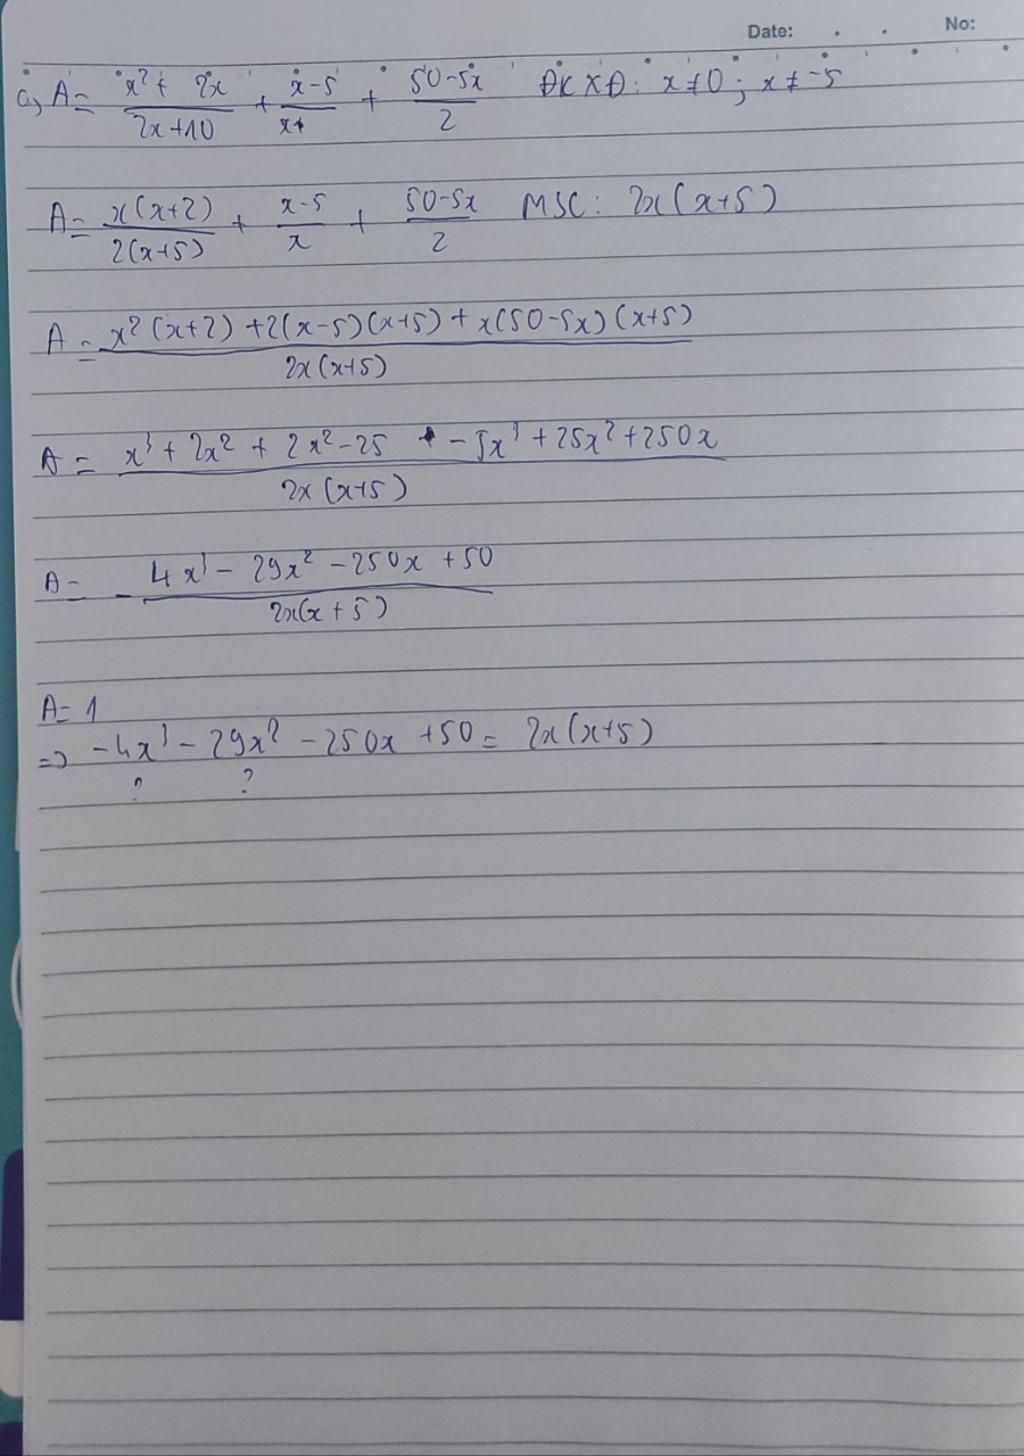 Date: . . No:
a, A = (x² + 2x)/(2x+10) + (x-5)/x + (50-5x)/2 ĐKXĐ: x≠0; x≠-5
A = x(x+2)/2(x+5) + (x-5)/x + (50-5x)/2 MSC: 2x(x+5)
A = (x²(x+2) + 2(x-5)(x+5) + x(50-5x)(x+5))/2x(x+5)
A = (x³ + 2x² + 2x² - 25 - 5x³ + 25x² + 250x)/2x(x+5)
A = - (4x³ - 29x² - 250x + 50)/2x(x+5)
A = 1
=> -4x³ - 29x² - 250x + 50 = 2x(x+5)
? ?